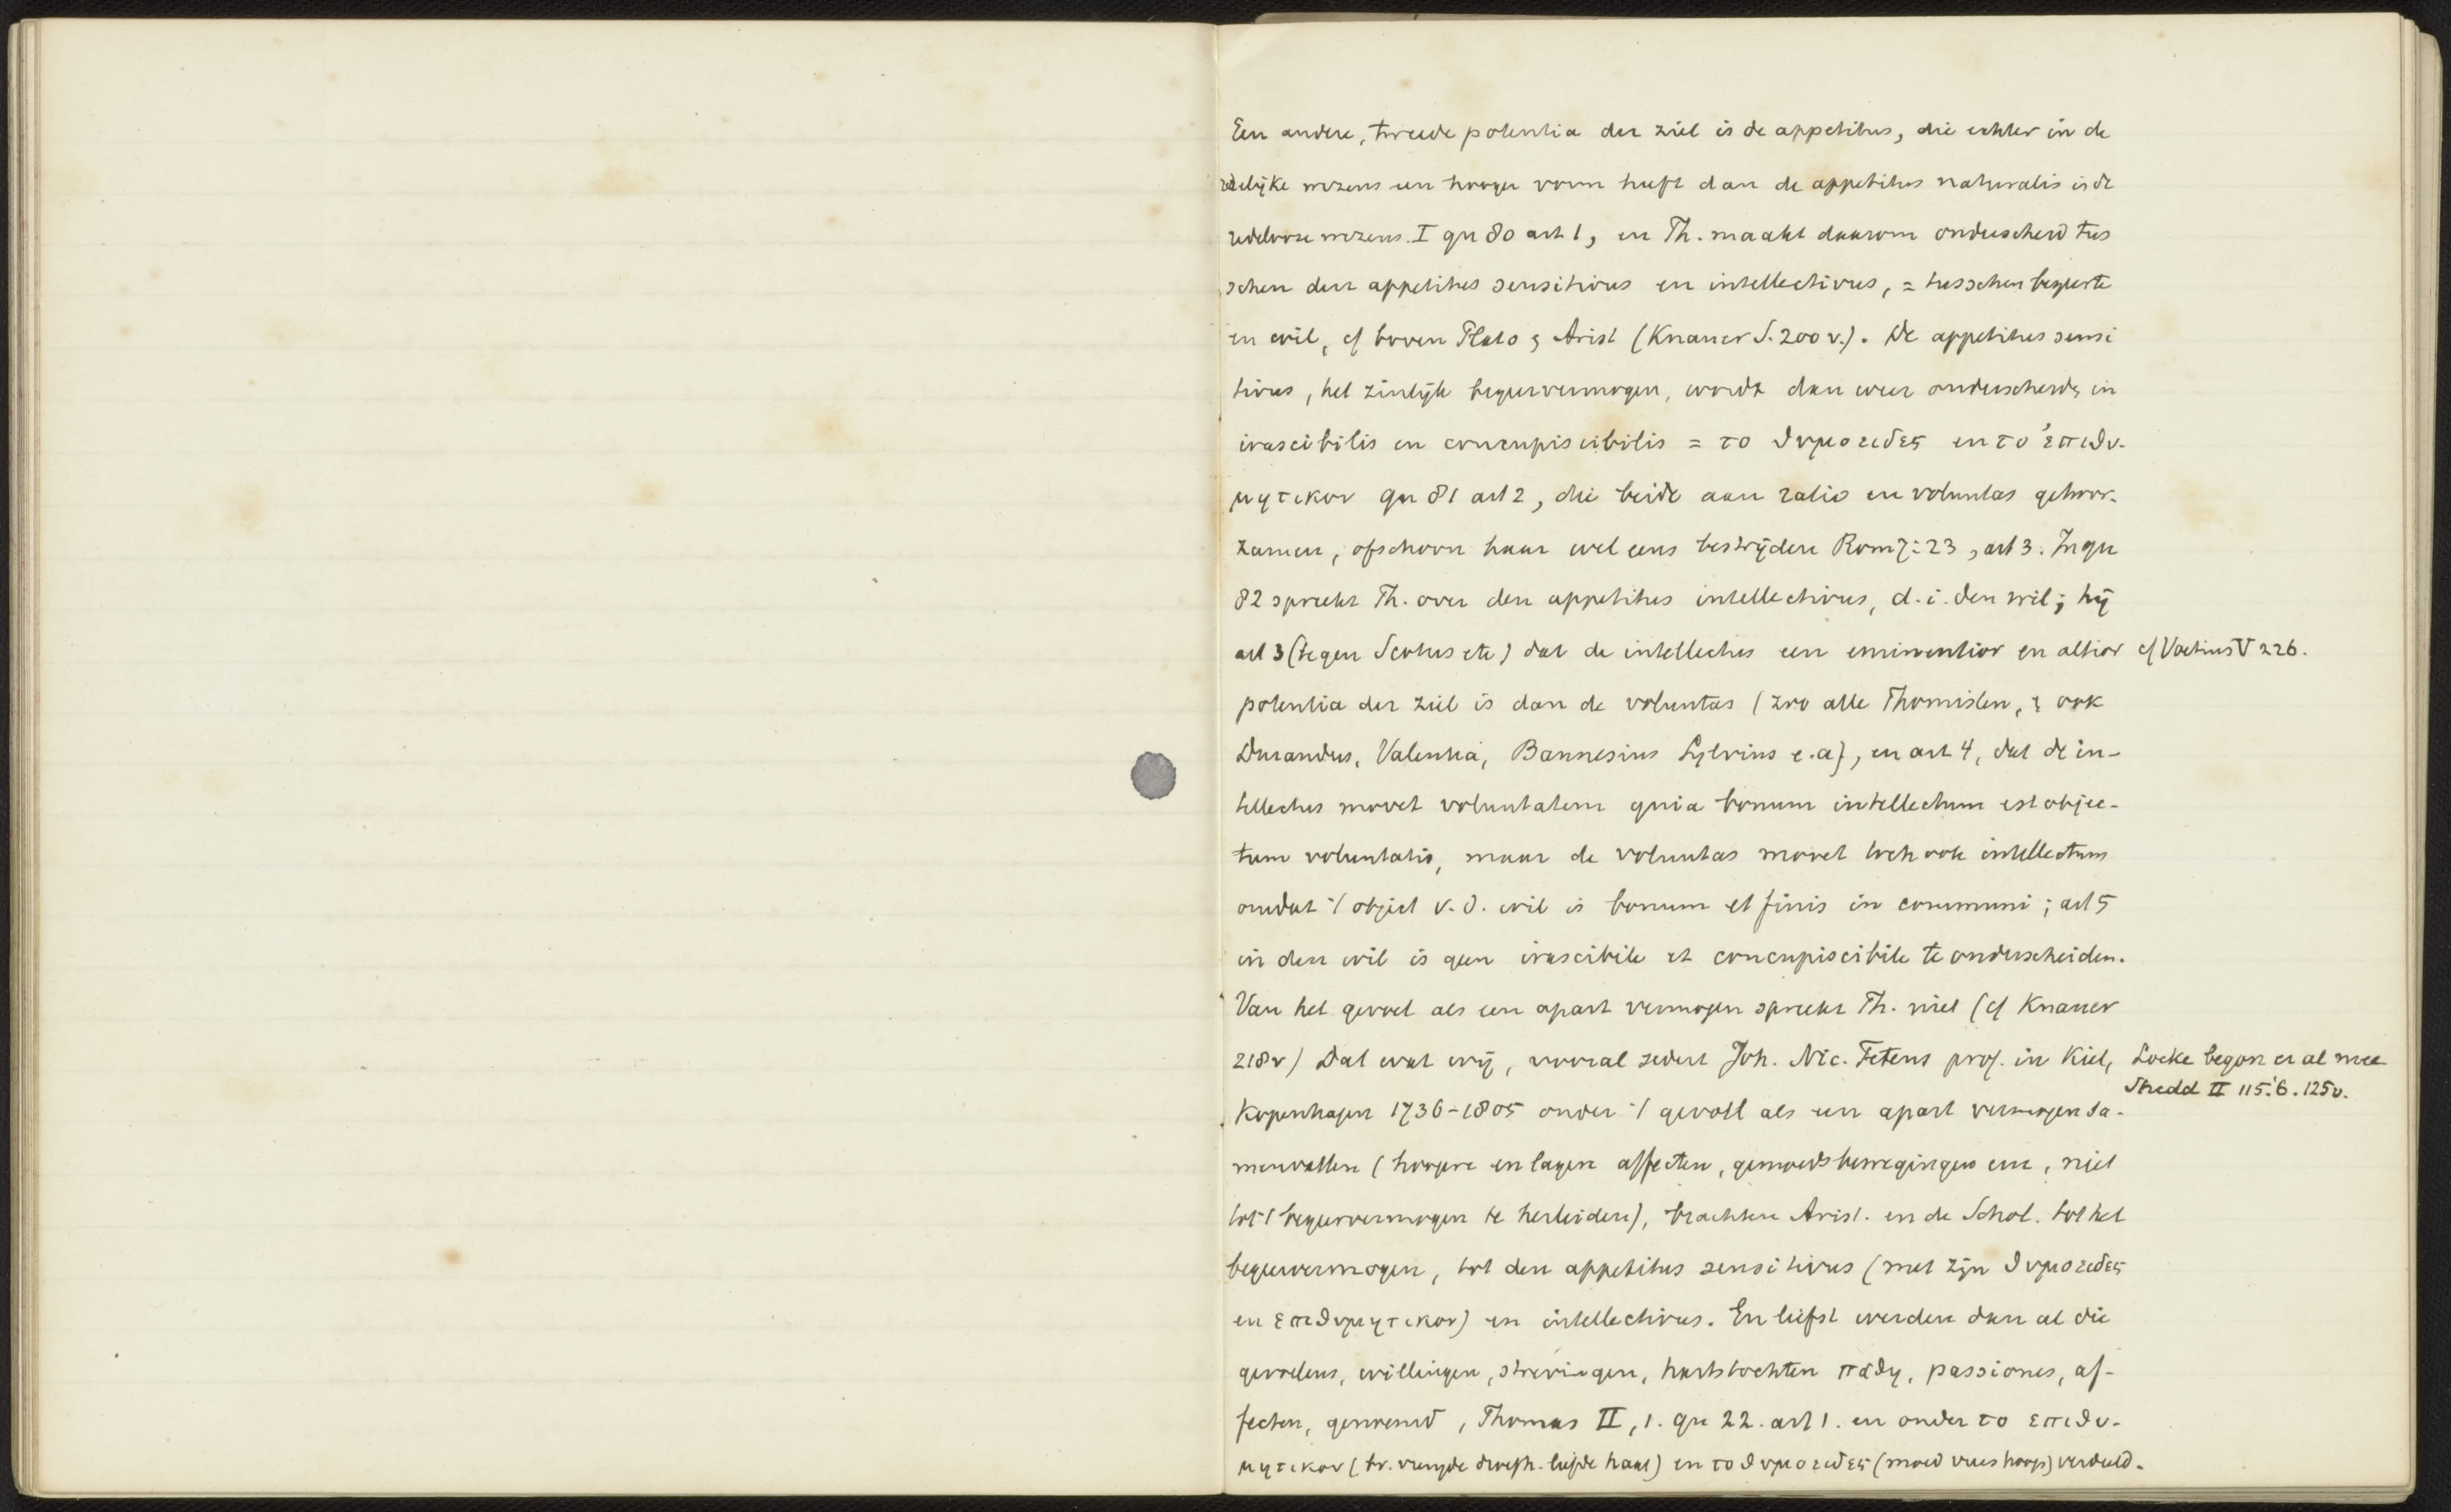 Een andere, tweede potentia der ziel is de appetitus, die echter in de
redelijke wezens een hooger vorm heeft dan de appetitus naturalis i/d
redelooze wezens. I qu 80 art 1, en Th. maakt daarom onderscheid tus
schen den appetitus sensitivus en intellectivus, = tusschen begeerte
en wil, cf boven Plato & Arist (Knauer S. 200 v.). De appetitus sensi
tivus, het zinlijk begeervermogen, wordt dan weer onderscheid in
irascibilis en concupiscibilis = το θυμοειδες en το ἐπιθυ-
μητικον qu 81 art 2, die beide aan ratio en voluntas gehoor-
zamen, ofschoon haar wel eens bestrijden Rom 7:23, art 3. In qu
82 spreekt Th. over den appetitus intellectivus, d.i. den wil; hij
art 3 (tegen Scotus etc) dat de intellectus een eminentior en altior cf Voetius V 226.
potentia der ziel is dan de voluntas (zoo alle Thomisten, & ook
Durandus, Valentia, Bannesius Sylvius e.a), en art 4, dat de in-
tellectus movet voluntatem quia bonum intellectum est objec-
tum voluntatis, maar de voluntas movet toch ook intellectum
omdat 't object v.d. wil is bonum et finis in communi; art 5
in den wil is geen irascibile et concupiscibile te onderscheiden.
Van het gevoel als een apart vermogen spreekt Th. niet (cf Knauer
218v) Dat wat wij, vooral sedert Joh. Nic. Tetens prof. in Kiel, Locke begon er al mee
Shedd II 115.'6. 125v.
Kopenhagen 1736-1805 onder 't gevoel als een apart vermogen sa-
menvatten (hoogere en lagere affecten, gemoedsbewegingen enz, niet
tot 't begeervermogen te herleiden), brachten Arist. en de Schol. tot het
begeervermogen, tot den appetitus sensitivus (met zijn θυμοειδες
en επιθυμητικον) en intellectivus. En liefst werden dan al die
gevoelens, willingen, strevingen, hartstochten παθη, passiones, af-
fecten, genoemd, Thomas II, 1. qu 22. art 1. en onder το επιθυ-
μητικον (bv. vreugde droefh. liefde haat) en το θυμοειδες (moed vrees hoop) verdeeld.